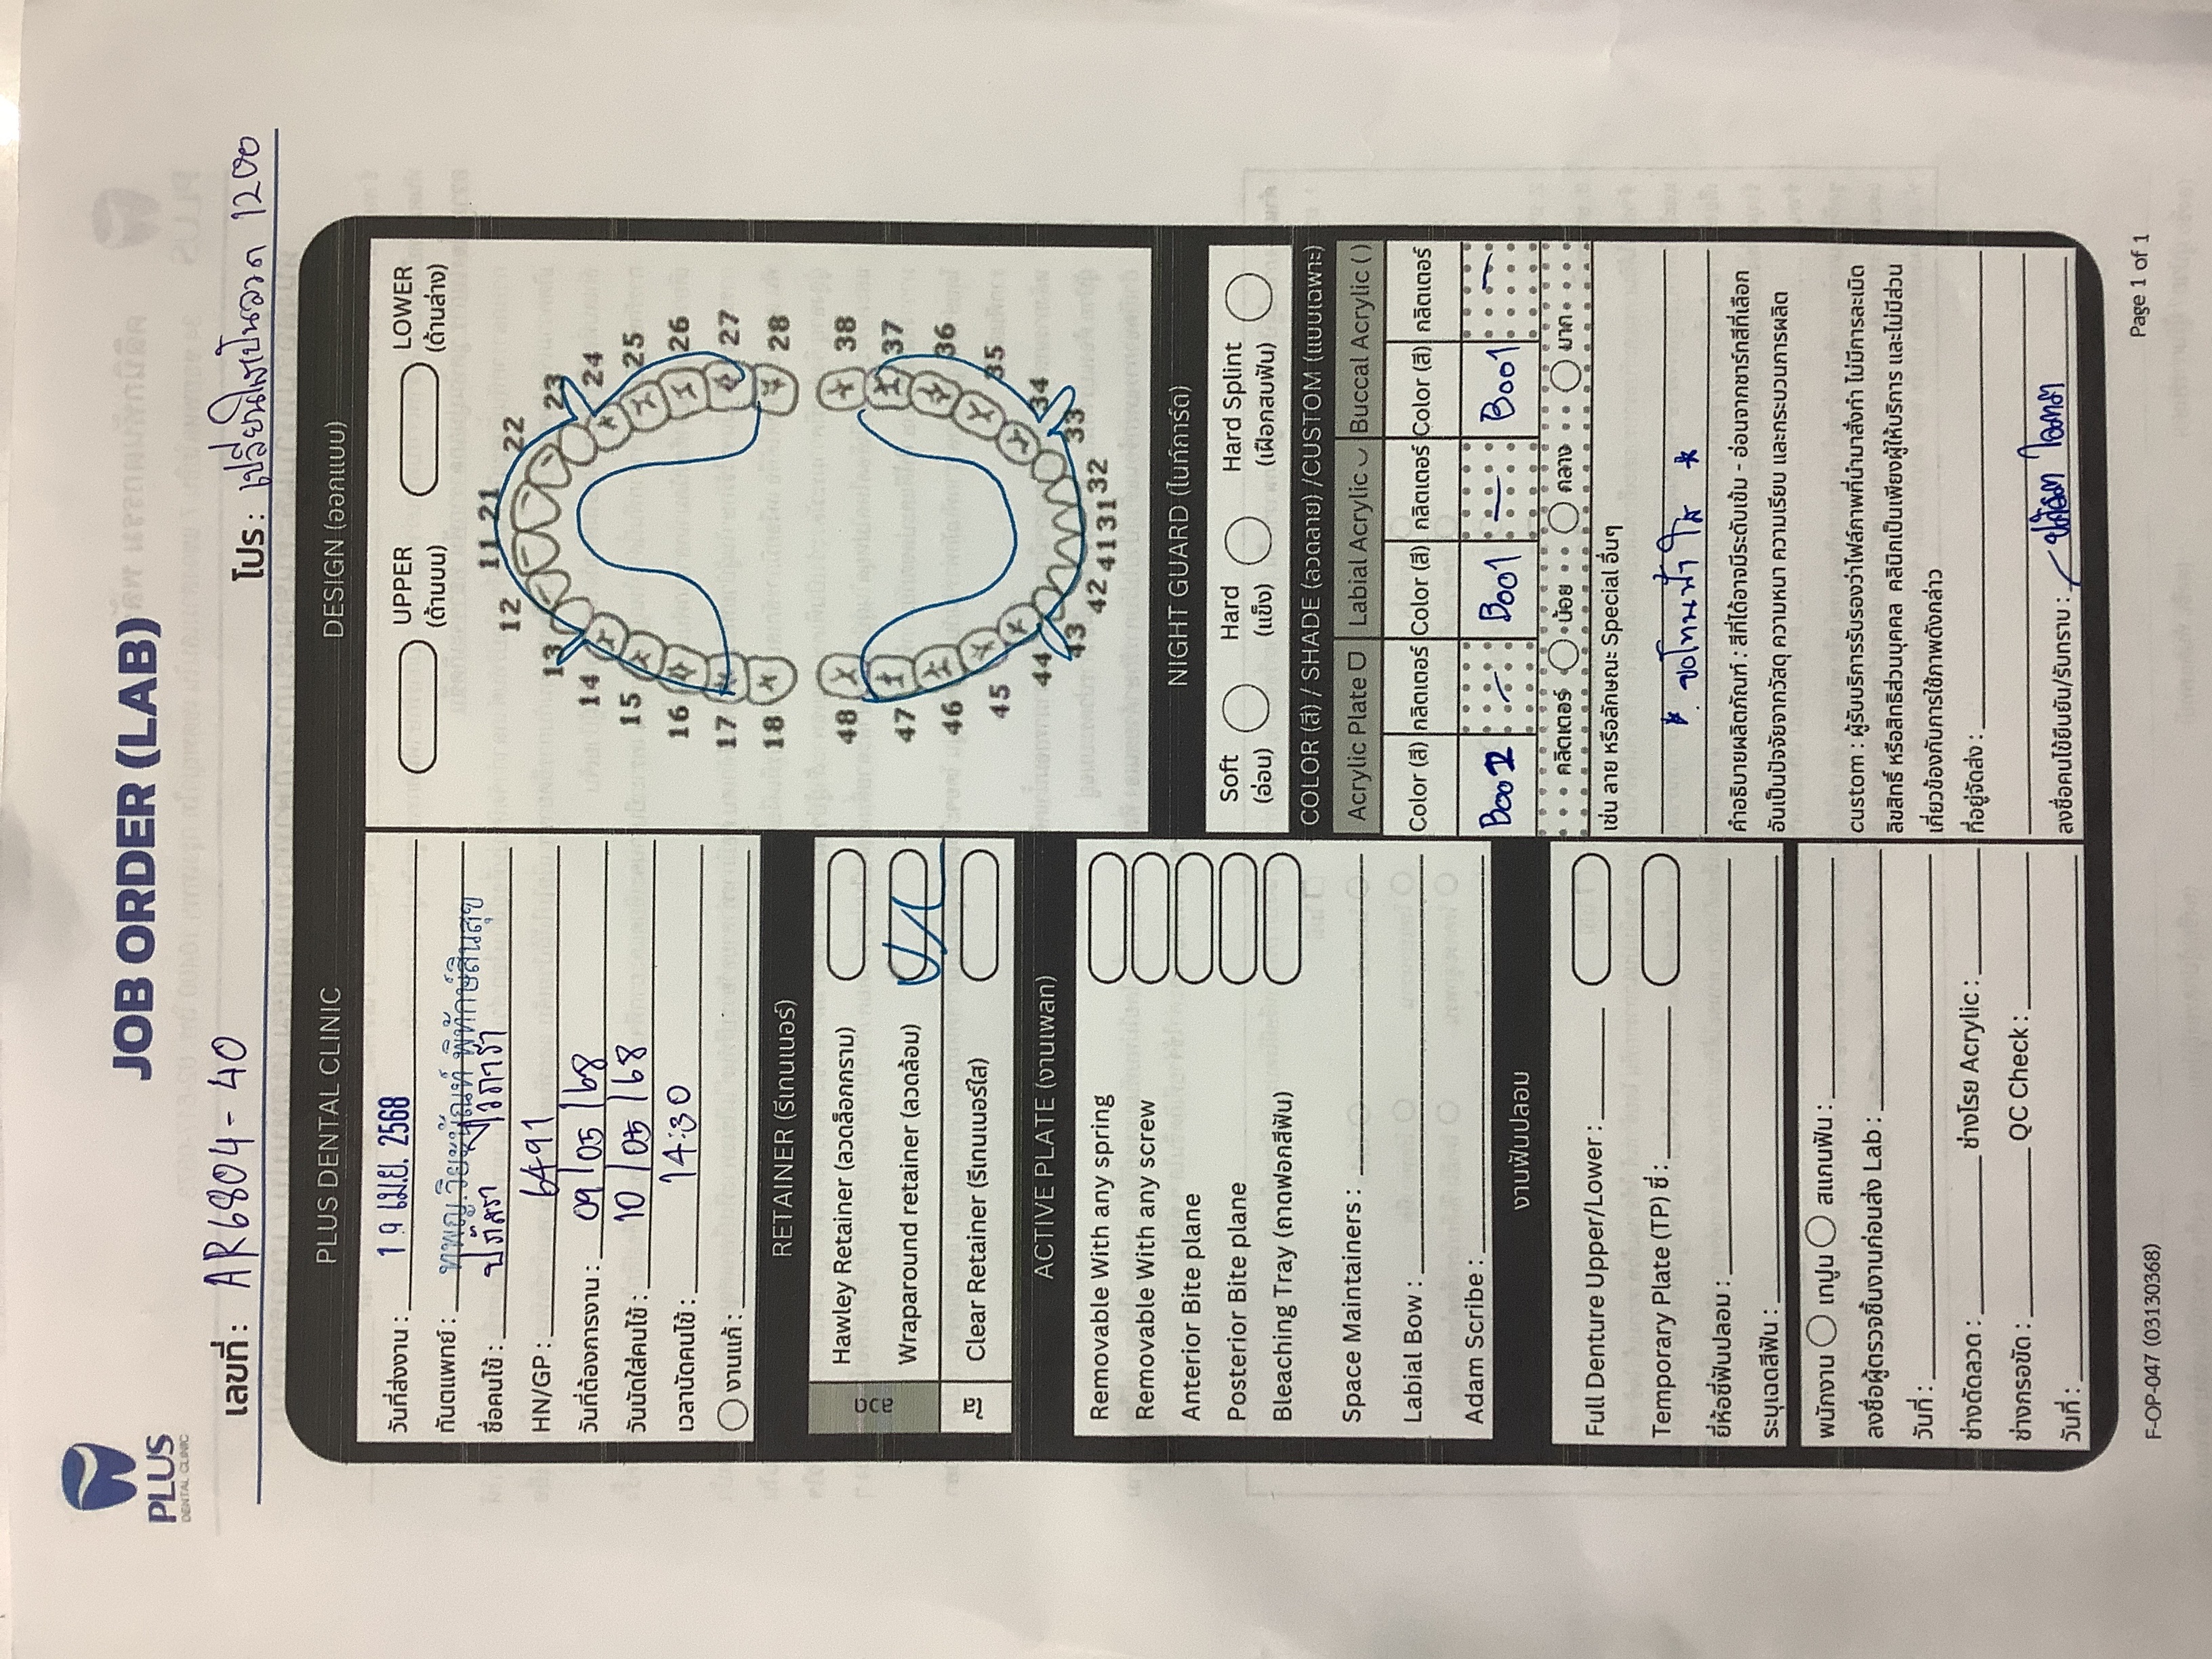 PLUS
DENTAL CLINIC
JOB ORDER (LAB)
เลขที่ : AR6804-40
โปร : เปลี่ยนใสเป็นลวด 1200
PLUS DENTAL CLINIC
วันที่ส่งงาน : 19 เม.ย. 2568
ทันตแพทย์ : ทพญ.วิยะนัณท์ พิทักษ์สินสุข
ชื่อคนไข้ : ปภัสรา
HN/GP : 6491
วันที่ต้องการงาน : 09/05/68
วันนัดใส่คนไข้ : 10/05/68
เวลานัดคนไข้ : 14:30
งานแก้ :
RETAINER (รีเทนเนอร์)
ลวด
Hawley Retainer (ลวดล็อกกราม)
Wraparound retainer (ลวดล้อม)
ใส
Clear Retainer (รีเทนเนอร์ใส)
ACTIVE PLATE (งานเพลท)
Removable With any spring
Removable With any screw
Anterior Bite plane
Posterior Bite plane
Bleaching Tray (ถาดฟอกสีฟัน)
Space Maintainers :
Labial Bow :
Adam Scribe :
งานฟันปลอม
Full Denture Upper/Lower :
Temporary Plate (TP) ซี่ :
ยี่ห้อซี่ฟันปลอม :
ระบุเฉดสีฟัน :
พนักงาน เทปูน สแกนฟัน :
ลงชื่อผู้ตรวจชิ้นงานก่อนส่ง Lab :
วันที่ :
ช่างดัดลวด : ช่างโรย Acrylic :
ช่างกรอขัด : QC Check :
วันที่ :
DESIGN (ออกแบบ)
UPPER LOWER
(ด้านบน) (ด้านล่าง)
11 21
12 22
13 23
14 24
15 25
16 26
17 27
18 28
48 38
47 37
46 36
45 35
44 34
43 33
42 41 31 32
NIGHT GUARD (ไนท์การ์ด)
Soft Hard Hard Splint
(อ่อน) (แข็ง) (เฝือกสบฟัน)
COLOR (สี) / SHADE (ลวดลาย) /CUSTOM (แบบเฉพาะ)
Acrylic Plate Labial Acrylic Buccal Acrylic ( )
Color (สี) กลิตเตอร์ Color (สี) กลิตเตอร์ Color (สี) กลิตเตอร์
B001 - B001 - B001 -
กลิตเตอร์ น้อย กลาง มาก
เช่น ลาย หรือลักษณะ Special อื่นๆ
* ขอโทนฟ้า ใส *
คำอธิบายผลิตภัณฑ์ : สีที่ได้อาจมีระดับเข้ม - อ่อนจากชาร์ทสีที่เลือก
อันเป็นปัจจัยจากวัสดุ ความหนา ความเรียบ และกระบวนการผลิต
custom : ผู้รับบริการรับรองว่าไฟล์ภาพที่นำมาสั่งทำ ไม่มีการละเมิด
ลิขสิทธิ์ หรือสิทธิส่วนบุคคล คลินิกเป็นเพียงผู้ให้บริการ และไม่มีส่วน
เกี่ยวข้องกับการใช้ภาพดังกล่าว
ที่อยู่จัดส่ง :
ลงชื่อคนไข้ยืนยัน/รับทราบ :
F-OP-047 (03130368)
Page 1 of 1